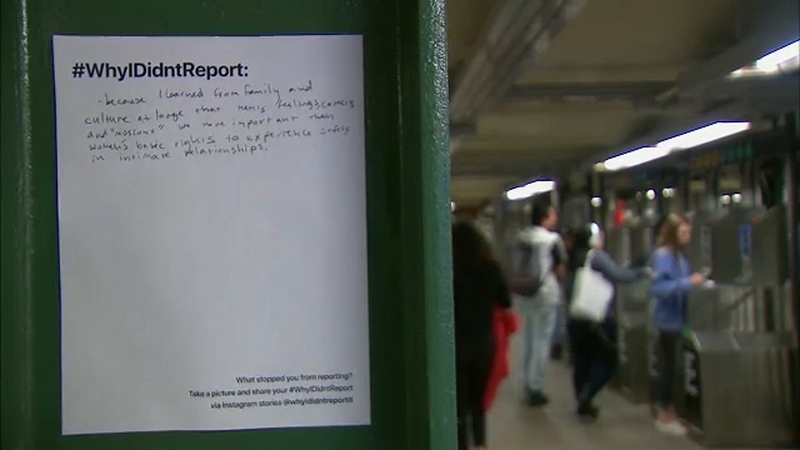 #WhyIDidntReport:
- because I learned from family and
culture at large that men's feelings, careers
and "missions" are more important than
women's basic rights to experience safety
in intimate relationships.
What stopped you from reporting?
Take a picture and share your #WhyIDidntReport
via Instagram stories @whyididntreportit